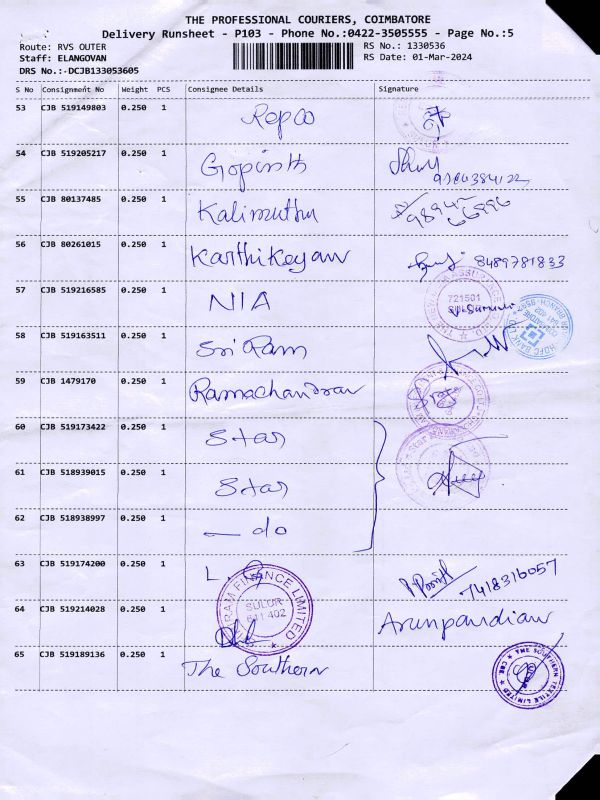 THE PROFESSIONAL COURIERS, COIMBATORE
Delivery Runsheet - P103 - Phone No.:0422-3505555 - Page No.:5
Route: RVS OUTER RS No.: 1330536
Staff: ELANGOVAN RS Date: 01-Mar-2024
DRS No.:-DCJB133053605
S No Consignment No Weight PCS Consignee Details Signature
53 CJB 519149803 0.250 1 Repco
54 CJB 519205217 0.250 1 Gopinath
55 CJB 80137485 0.250 1 Kalimuthu 98945 66996
56 CJB 80261015 0.250 1 Karthikeyan 8489781833
57 CJB 519216585 0.250 1 NIA 721501
58 CJB 519163511 0.250 1 Sri Ram HDFC BANK
59 CJB 1479170 0.250 1 Ramachandran
60 CJB 519173422 0.250 1 Star
61 CJB 518939015 0.250 1 Star
62 CJB 518938997 0.250 1 — do
63 CJB 519174200 0.250 1 L 7418316057
FINANCE LIMITED
SULUR
641 402
64 CJB 519214028 0.250 1 Arunpandian
65 CJB 519189136 0.250 1 The Southern THE SOUTHERN TEXTILE LIMITED CBE